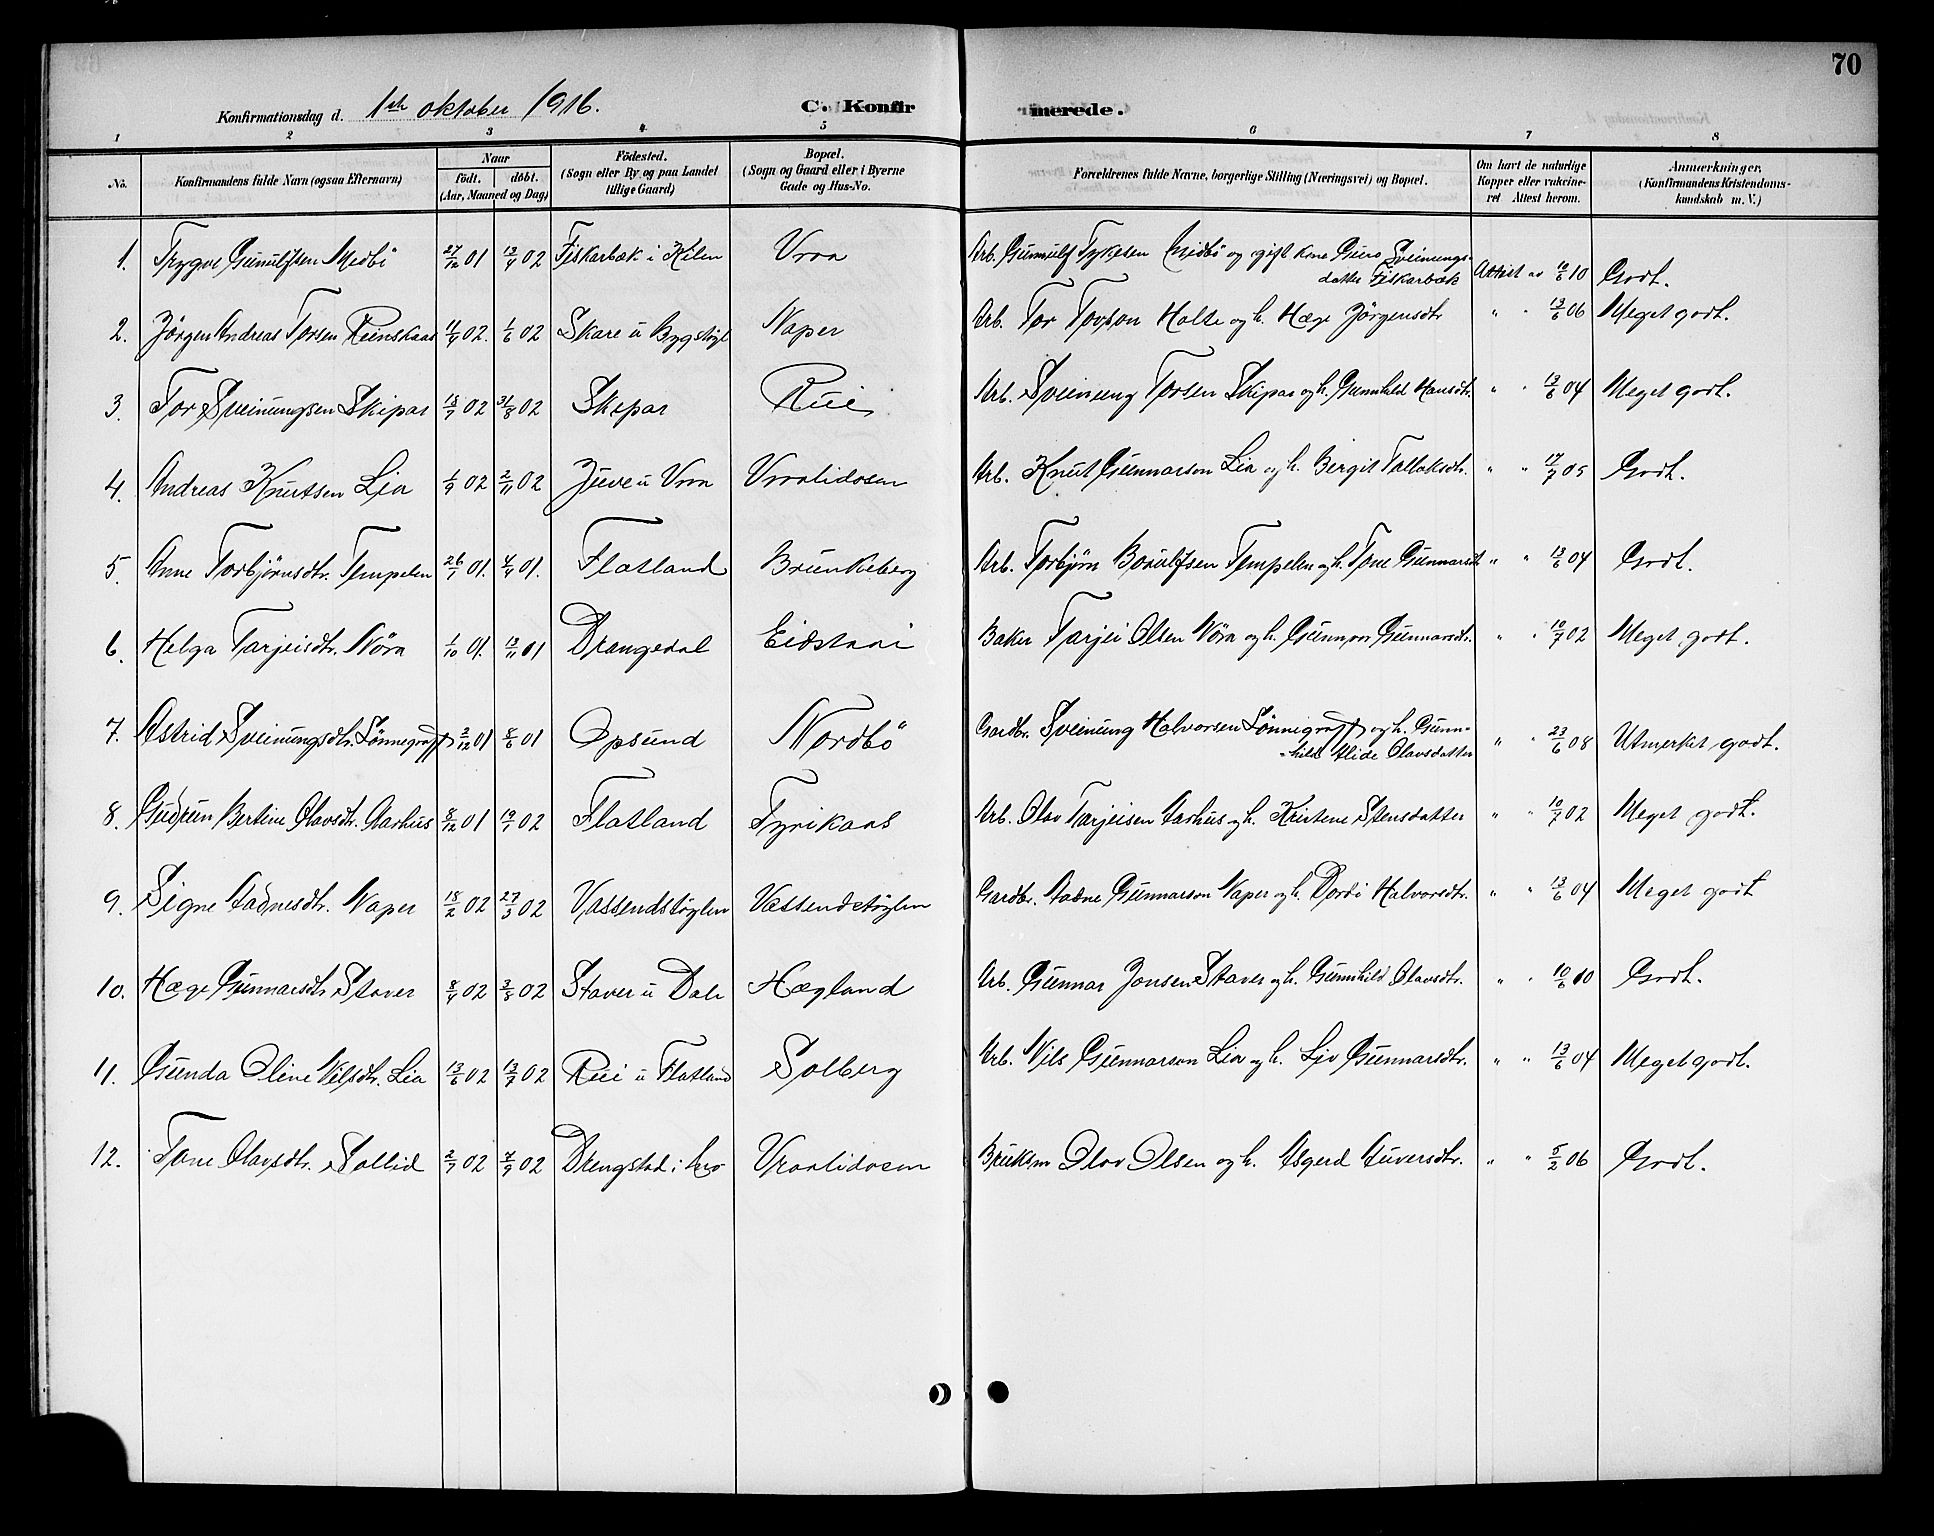 70
Konfirmationsdag d. 1ste oktober 1916. C. Konfir merede.
1 2 3 4 5 6 7 8
No. Konfirmandens fulde Navn (ogsaa Efternavn) Naar födt. döbt. (Aar, Maaned og Dag) Födested. (Sogn eller By og paa Landet tillige Gaard) Bopæl. (Sogn og Gaard eller i Byerne Gade og Hus-No. Forældrenes fulde Navne, borgerlige Stilling (Næringsvei) og Bopæl. Om havt de naturlige Kopper eller vakcineret Attest herom. Anmærkninger. (Konfirmandens Kristendomskundskab m. V.)
1. Trygve Gunulfsen Midbö 27/12 01 13/4 02 Fiskarbæk i Kilen Vraa Arb. Gunnulf Tykelsen Midbö og ugift kone Guro Sveinungsdatter Fiskarbæk Attest av 10/6 10 Godt.
2. Jörgen Andreas Torsen Reinskaas 11/4 02. 1/6 02 Skare u Bygstöyl Naper Arb. Tor Tovson Holte og h. Hæge Jörgensdtr " " 13/6 06 Meget godt.
3. Tor Sveinungsen Skipar 18/7 02 31/8 02 Skepar Rui Arb. Sveinung Torsen Skipar og h. Gunnhild Hansdtr. " " 13/6 04 Meget godt.
4. Andreas Knutsen Lia 1/9 02 2/11 02 Juve u Vraa Vraalidosen Arb. Knut Gunnarson Lia og h. Birgit Tallaksdtr. " " 17/7 05 Godt.
5. Anne Torbjörnsdtr. Tempelen 26/1 01. 4/4 01. Flatland Brunkeberg Arb. Torbjörn Borulfsen Tempelen og h. Tone Gunnarsdt " " 13/6 04 Godt.
6. Helga Tarjeisdtr. Nöra 1/10 01. 13/11 01 Drangedal Eidstaai Baker Tarjei Olsen Nöra og h. Gunnvor Gunnarsdtr. " " 10/7 02 Meget godt.
7. Astrid Sveinungsdtr. Lönnegraff 2/12 01 8/6 01 Opsund Nordbö Gardbr. Sveinung Halvorsen Lönnigraff og h. Gunnhild Alide Olavsdatter " " 23/6 08 Utmerket godt.
8. Gudrun Bertine Olavsdtr. Aarhus 8/12 01 19/1 02 Flatland Tyrikaas Arb. Olav Tarjeisen Aarhus og h. Kristene Stensdatter " " 10/7 02 Meget godt.
9. Signe Aadnesdtr. Naper 18/2 02 27/3 02 Vassendstöylen Vassendstöylen Gardbr. Aadne Gunnarson Naper og h. Dordi Halvorsdtr. " " 13/6 04 Meget godt
10. Hæge Gunnarsdtr Staver 8/4 02 3/8 02 Staver u Dale Hægland Arb. Gunnar Jonsen Staver og h. Gunnhild Olavsdtr. " " 10/6 10 Godt.
11. Gunda Oline Nilsdtr. Lia 13/6 02 13/7 02 Rui u Flatland Solberg Arb. Nils Gunnarson Lia og h. Liv Gunnarsdtr. " " 13/6 04 Meget godt.
12. Tone Olavsdtr. Sollid 2/7 02 7/9 02 Drengstad i Vraalidosen Bruksm Olav Olsen og h. Asgerd Auversdtr. " " 5/2 06 Godt.